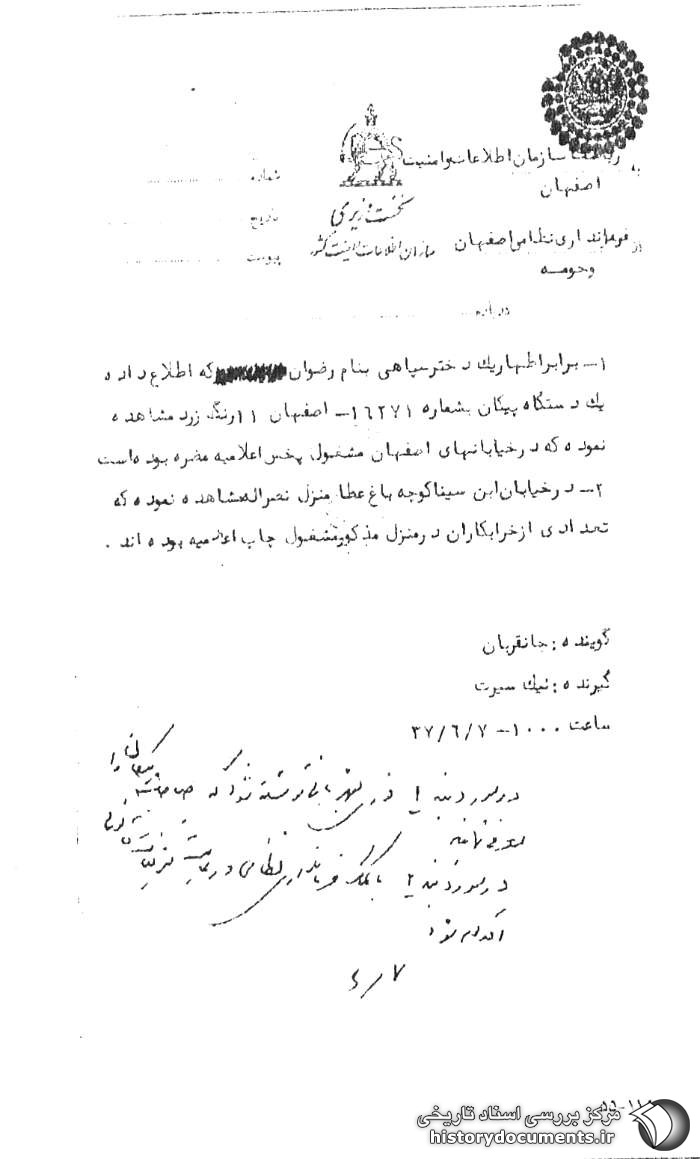 به ریاست سازمان اطلاعات و امنیت
اصفهان
شماره
نخست وزیری
تاریخ
از فرمانداری نظامی اصفهان
و حومه
سازمان اطلاعات و امنیت کشور
پیوست
درباره
۱- برابر اظهار یک دختر سپاهی بنام رضوان که اطلاع داده
یک دستگاه پیکان بشماره ۱۶۲۷۱- اصفهان ۱۱ رنگ زرد مشاهده
نموده که در خیابانهای اصفهان مشغول پخش اعلامیه مضره بوده است
۲- در خیابان ابن سینا کوچه باغ عطا منزل نصراله مشاهده نموده که
تعدادی از خرابکاران در منزل مذکور مشغول چاپ اعلامیه بوده اند .
گوینده : جانقربان
گیرنده : نیک سیرت
ساعت ۱۰۰۰- ۳۷/۶/۷
در مورد بند ۱ فوری شهربانی نوشته شود که صاحب پیکان را
در مورد بند ۲ با کمک فرمانداری نظامی در
اقدام شود
۶/۷
مرکز بررسی اسناد تاریخی
historydocuments.ir